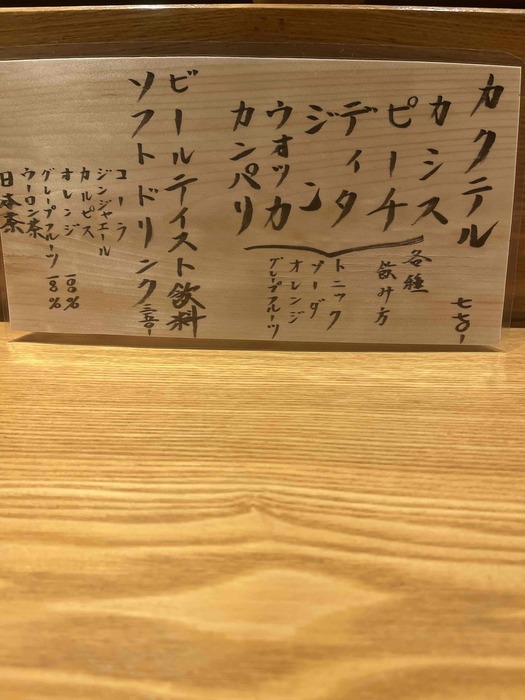 カクテル 七七〇ー
カシス
ピーチ
ディタ
ジン
ウオッカ
カンパリ
各種
飲み方
トニック
ソーダ
オレンジ
グレープフルーツ
ビールテイスト飲料
ソフトドリンク
コーラ
ジンジャエール
カルピス
オレンジ 一〇〇%
グレープフルーツ 一〇〇%
ウーロン茶
日本茶